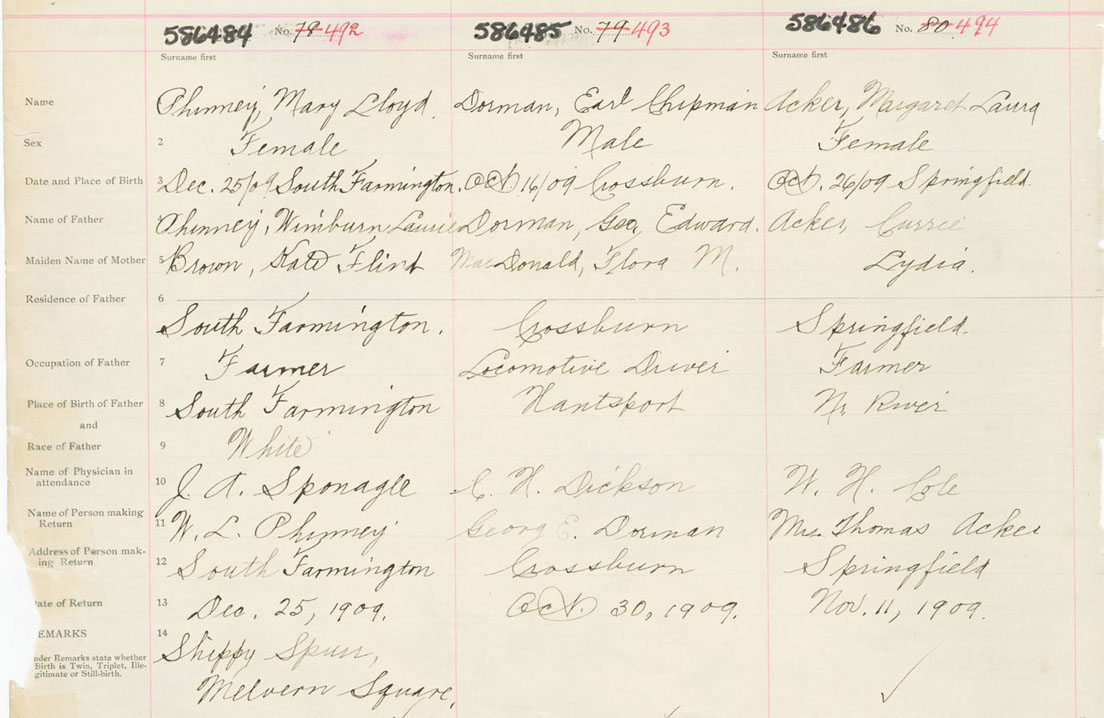 586484 No. 79 492 586485 No. 79 493 586486 No. 80 494
Surname first Surname first Surname first
Name Phinney, Mary Lloyd. Dorman, Earl Chipman Acker, Margaret Laura
Sex 2 Female Male Female
Date and Place of Birth 3 Dec. 25/09 South Farmington. Oct 16/09 Crossburn. Oct. 26/09 Springfield.
Name of Father Phinney, Wimburn Laurie Dorman, Geo, Edward. Acker,
Maiden Name of Mother 5 Brown, Kate Flint MacDonald, Flora M. Lydia.
Residence of Father 6
South Farmington. Crossburn Springfield.
Occupation of Father 7 Farmer Locomotive Driver Farmer
Place of Birth of Father 8 South Farmington Hantsport River
and
Race of Father 9 White
Name of Physician in
attendance 10 J. A. Sponagle C. H. Dickson W. H. Cole
Name of Person making
Return 11 W. L. Phinney Georg E. Dorman Mrs. Thomas Acker
Address of Person mak-
ing Return 12 South Farmington Crossburn Springfield
ate of Return 13 Dec. 25, 1909. Oct. 30, 1909. Nov. 11, 1909.
EMARKS 14
nder Remarks state whether Shippy Spurr,
Birth is Twin, Triplet, Ille-
gitimate or Still-birth.
Melvern Square,